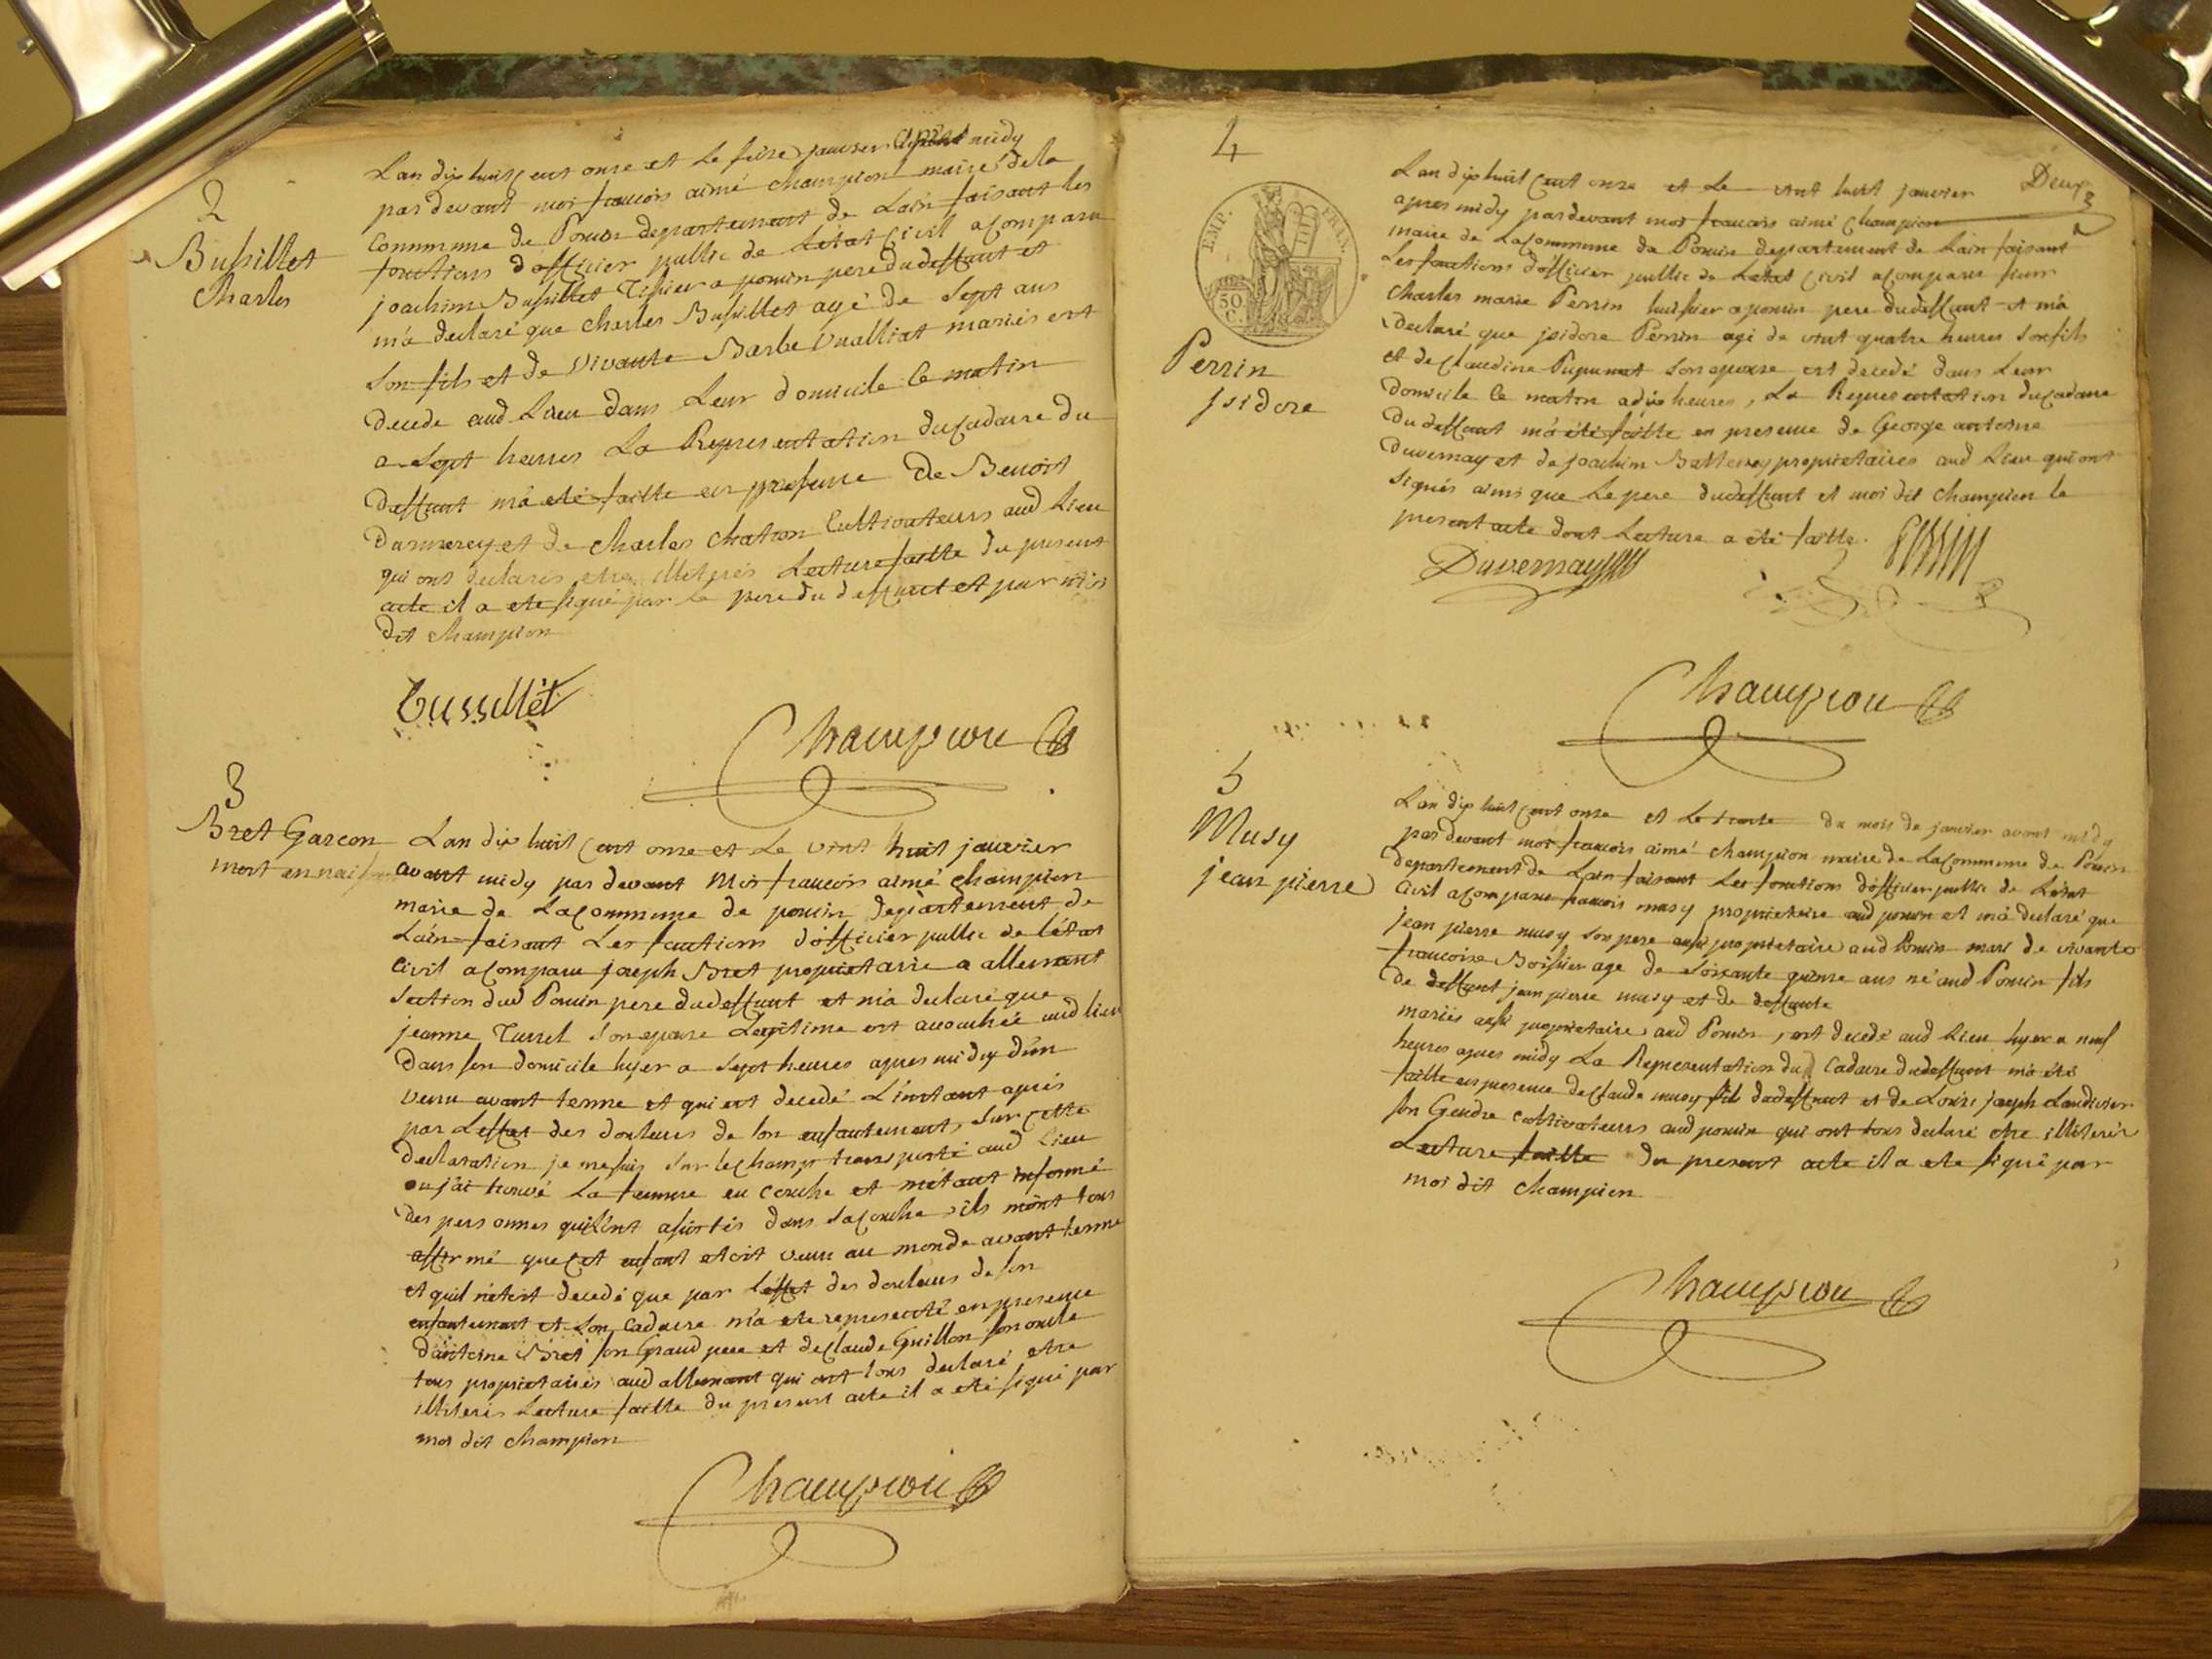 2
Bussillet
Charles
Lan dix huit cent onze et le seize janvier apres midy
par devant moi francois aimé champion maire de la
Commune de Poncin departement de Lain faisant les
fonctions dofficier public de Létat Civil a Comparu
joachim Bussillet Tissier a poncin pere du deffunt et
m'a declaré que Charles Bussillet agé de sept ans
son fils et de vivante Barbe vualliat mariés est
decede aud Lieu dans Leur domicile Ce matin
a sept heures La Representation du Cadavre du
deffunt m'a eté faitte en presence De Benoit
et de Charles Chation Cultivateurs aud Lieu
qui ont declarés etre illiterés Lecture faitte du present
acte il a ete signé par le pere du deffunt et par moi
dit Champion
bussillet
Champion
3
Bret Garcon
mort en
Lan dix huit Cent onze et Le vint huit janvier
avant midy par devant Moi francois aimé Champion
maire de La Commune de poncin departement de
Lain faisant Les fonctions dofficier public de létat
Civil a Comparu joseph Bret proprietaire a allement
section dud Poncin pere du deffunt et m'a declaré que
jeanne Turrel son epouse Legitime est accouchée aud lieu
dans son domicile hyer a sept heures apres midy d'un
venu avant terme et qui est decedé L'instant après
par Leffet des douleurs de son enfantement, sur cette
declaration je me suis sur le champ transporté aud Lieu
ou j'ai trouvé La femme en couche et m'étant informé
des personnes qui L'ont assistés dans sa couche, ils m'ont tous
affirmé que Cet enfant etoit venu au monde avant terme
et quil n'étoit decedé que par Leffet des douleurs de son
enfantement et son Cadavre m'a ete representé en presence
d'antoine Bret son Grand pere et de Claude Guillon son oncle
tous proprietaires aud allement qui ont tous declaré etre
illiterés Lecture faitte du present acte il a eté signé par
moi dit Champion
Champion
4
Deux
EMP. FRAN.
50 C.
Perrin
jsidore
Lan dix huit Cent onze et Le vint huit janvier
apres midy par devant moi francois aimé Champion
maire de La Commune de Poncin departement de Lain faisant
Les fonctions dofficier public de Létat Civil a Comparu sieur
Charles marie Perrin huissier a poncin pere du deffunt et m'a
declaré que jsidore Perrin agé de vint quatre heures son fils
et de Claudine Pupunat son epouse est decedé dans Leur
domicile Ce matin a dix heures, La Representation du Cadavre
du deffunt m'a été faitte en presence de George antoine
Duvernay et de joachim proprietaires aud Lieu qui ont
signés ainsi que Le pere du deffunt et moi dit Champion le
present acte dont Lecture a été faitte.
Duvernay
Perrin
Champion
5
Musy
jean pierre
Lan dix huit Cent onze et Le trente du mois de janvier avant midy
par devant moi francois aimé Champion maire de La Commune de Poncin
departement de Lain faisant Les fonctions dofficier public de Létat
Civil a Comparu francois musy proprietaire aud poncin et m'a declaré que
jean pierre musy son pere aussi proprietaire aud Poncin mari de vivante
francoise Boissier age de soixante quinze ans né aud Poncin fils
de deffunt jean pierre musy et de deffunte
mariés aussi proprietaires aud Poncin, est decedé aud Lieu hyer a neuf
heures apres midy La Representation du Cadavre du deffunt m'a été
faitte en presence de Claude musy fils du deffunt et de Louis joseph Landivier
son Gendre Cultivateurs aud poncin qui ont tous declaré etre illiterés
Lecture faitte du present acte il a ete signé par
moi dit Champion
Champion